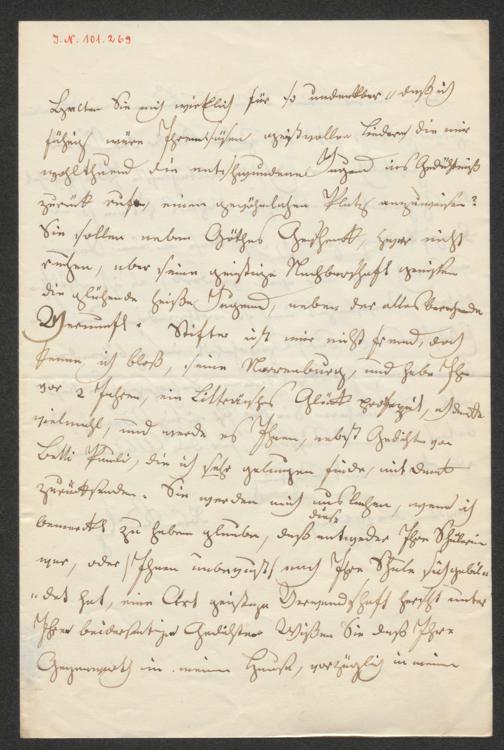 J.N. 101.269
Halten Sie mich wirklich für so undankbar, daß ich
fähig wäre Ihren süßen geistvollen Liedern die mir
wohlthuend die entschwundene Jugend ins Gedächtniß
zurück rufen, einen gewöhnlichen Platz anzuweisen?
Sie sollen neben Göthes Geschenk, zwar nicht
ruhen, aber seine geistige Nachbarschaft genießen
die glühende heiße Jugend, neben der alles
Vernunft. Stifter ist mir nicht fremd, doch
kenne ich bloß, seine Narrenburg, und habe Ihm
vor 2 Jahren, ein Litterarisches Glück prophezeit,
vielmahl, und werde es Ihnen, nebst Gedicht von
Betti Paoli, die ich sehr gelungen finde, mit Dank
zurücksenden. Sie werden mich auslachen, wenn ich
bemerkt zu haben glaube, daß diese entweder Ihre Schülerin
war, oder Ihnen unbewußt nach Ihre Schule sich gebil-
det hat, eine Art geistige Verwandschaft herscht unter
Ihrer beiderseitigen Gedichter Wißen Sie daß Ihre
Gegenwarth in meinem Hause, vorzüglich in meinem